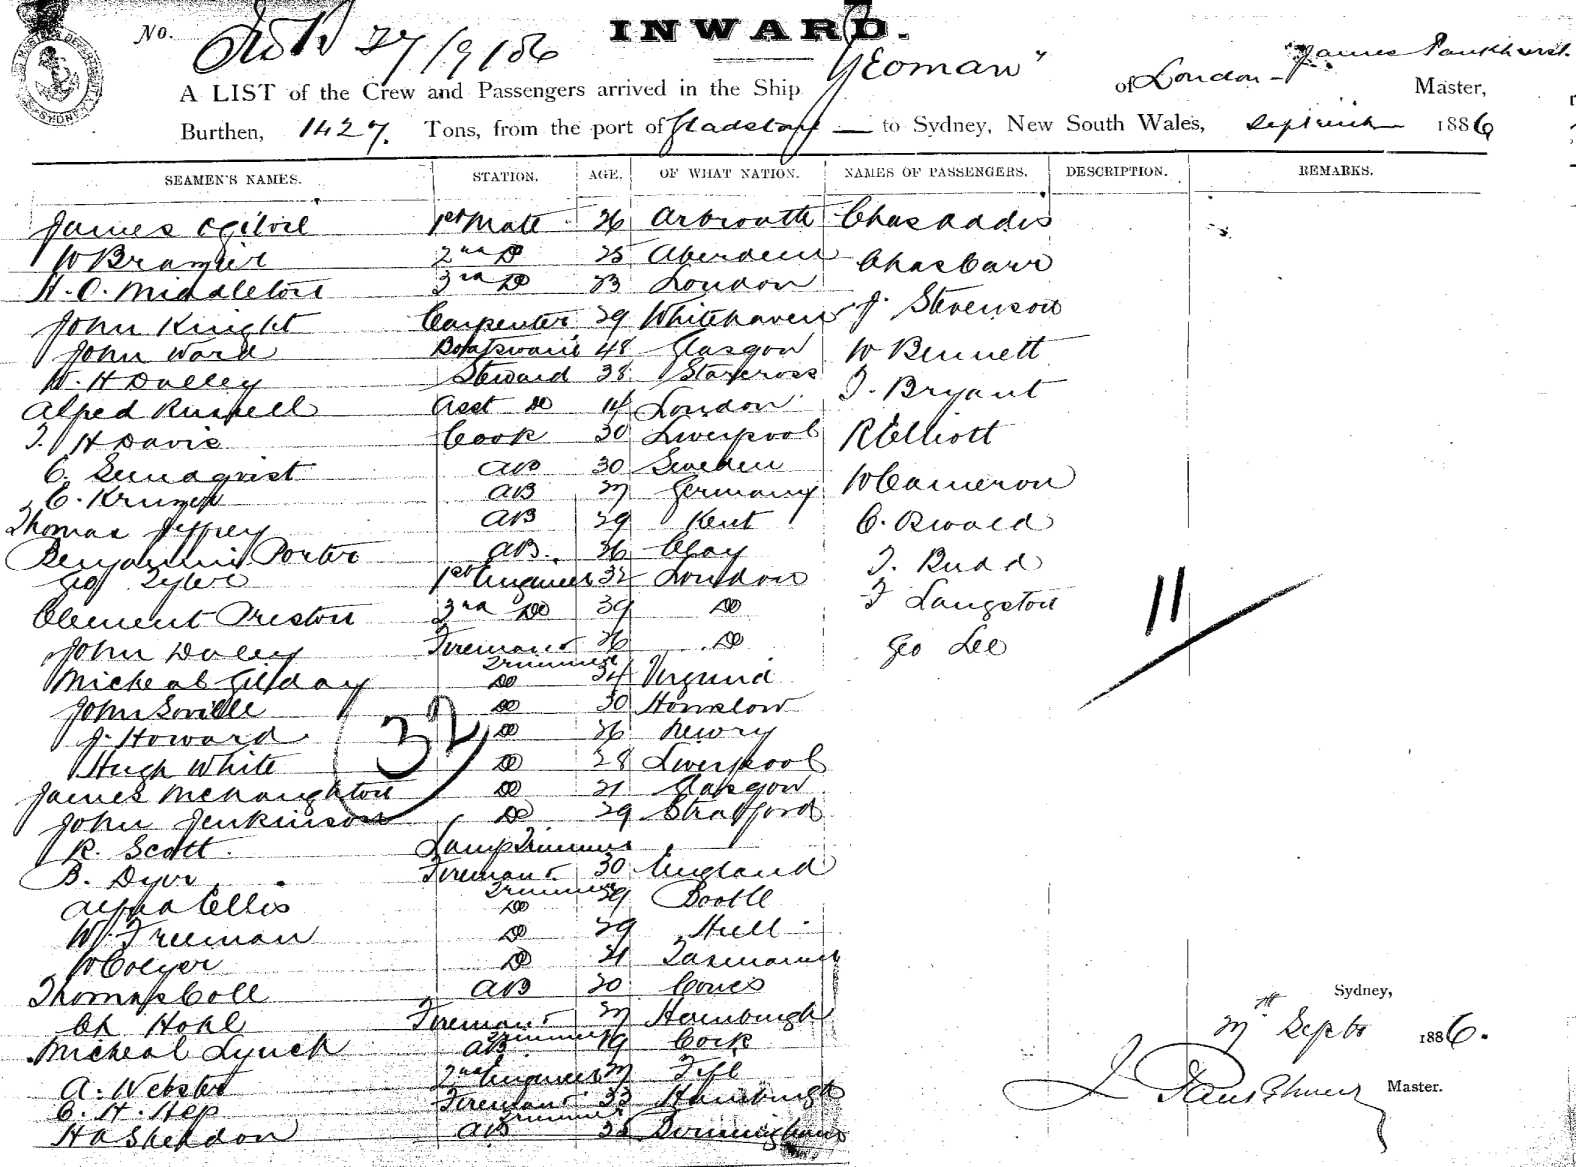 No. 27/9/86 INWARD.
A LIST of the Crew and Passengers arrived in the Ship "Yeoman" of London - James Pankhurst. Master,
Burthen, 1427. Tons, from the port of Gladstone to Sydney, New South Wales, September 1886
SEAMEN'S NAMES. STATION. AGE. OF WHAT NATION. NAMES OF PASSENGERS. DESCRIPTION. REMARKS.
James Ogilvie 1st Mate 26 Arbroath Chas Addis
W Bramier 2nd Do 25 Aberdeen Chas Carr
H. C. Middleton 3rd Do 23 London
John Knight Carpenter 29 Whitehaven J. Stevenson
John Ward Boatswain 48 Glasgow W Bennett
W. H Dalley Steward 38 Starcross
Alfred Russell Asst Do 14 London T. Bryant
T. H Davis Cook 30 Liverpool R Elliott
C. Sundqvist AB 30 Sweden
C. AB 27 Germany W Cameron
Thomas Jeffrey AB 29 Kent C. Oswald
Benjamin Porter AB. 26 Clay T. Budd
Geo Tyler 1st Engineer 32 London
Clement Preston 3rd Do 39 Do F Langston
John Daley Fireman & Trimmer 26 Do Geo Lee
Micheal Gilday Do 34 Virginia
John Do 30 Honslow
J. Howard Do 26 Newry
Hugh White Do 28 Liverpool
James McNaughton Do 21 Glasgow
John Jenkinson Do 29 Stratford
R. Scott. Lamp Trimmer
B. Dyer Fireman & Trimmer 30 England
Ellis Do 29 Bootle
W. Freeman Do 29 Hull
W Colyer Do 21 Tasmania
Thomas Coll AB 20 Cowes
Ch Hohl Fireman & Trimmer 27 Hamburgh
Micheal Lynch AB 19 Cork
A. Webster 2nd Engineer 27 Fife
C. H. Hep Fireman & Trimmer 33 Hamburgh
H A Sheldon AB 25 Birmingham
32
11
Sydney,
27th Septr 1886.
J Pankhurst Master.